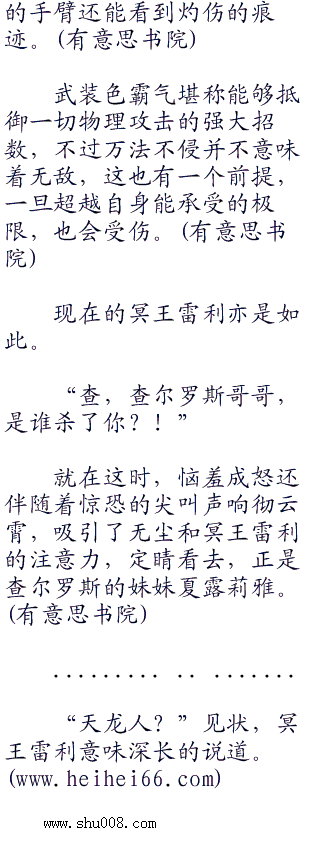 的手臂还能看到灼伤的痕
迹。(有意思书院)
武装色霸气堪称能够抵
御一切物理攻击的强大招
数，不过万法不侵并不意味
着无敌，这也有一个前提，
一旦超越自身能承受的极
限，也会受伤。(有意思书
院)
现在的冥王雷利亦是如
此。
“查，查尔罗斯哥哥，
是谁杀了你？！”
就在这时，恼羞成怒还
伴随着惊恐的尖叫声响彻云
霄，吸引了无尘和冥王雷利
的注意力，定睛看去，正是
查尔罗斯的妹妹夏露莉雅。
(有意思书院)
......... .. .......
“天龙人？”见状，冥
王雷利意味深长的说道。
(www.heihei66.com)
www.shu008.com